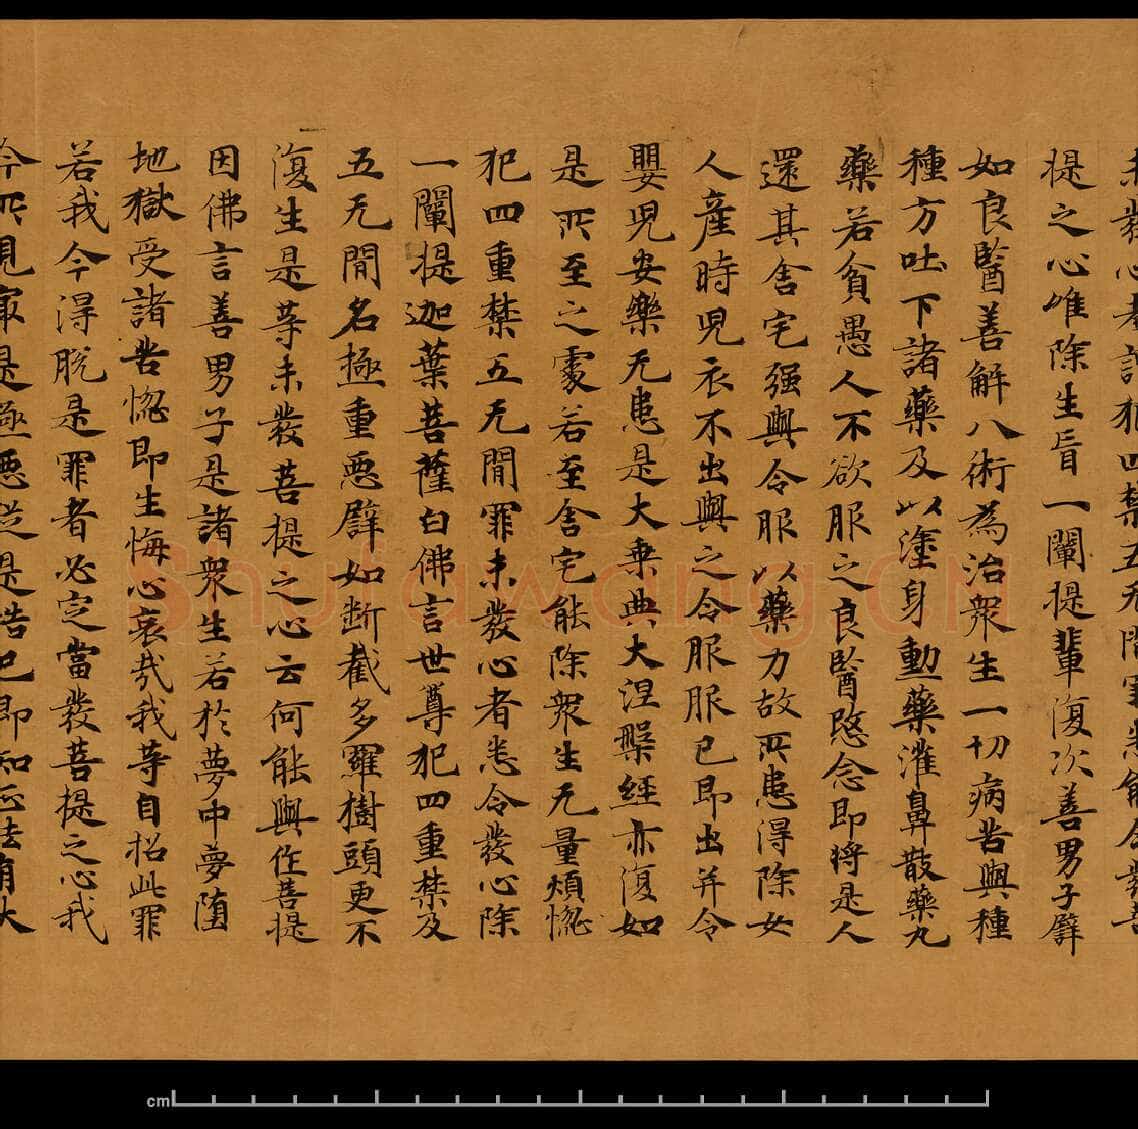 未發心者說犯四禁五无間罪悉能令發菩
提之心唯除生盲一闡提輩復次善男子譬
如良毉善解八術為治衆生一切病苦與種
種方吐下諸藥及以塗身勳藥灌鼻散藥丸
藥若貧愚人不欲服之良毉愍念即將是人
還其舍宅强與令服以藥力故所患得除女
人産時兒衣不出與之令服服已即出并令
嬰兒安樂无患是大乗典大涅槃經亦復如
是所至之處若至舍宅能除衆生无量煩惱
犯四重禁五无間罪未發心者悉令發心除
一闡提迦葉菩薩白佛言世尊犯四重禁及
五无間名極重惡譬如斷截多羅樹頭更不
復生是等未發菩提之心云何能與作菩提
因佛言善男子是諸衆生若於夢中夢堕
地獄受諸苦惱即生悔心哀哉我等自招此罪
若我今得脱是罪者必定當發菩提之心我
今所見寂是極惡從是悟已即知正法有大
Shufawang.CN
cm